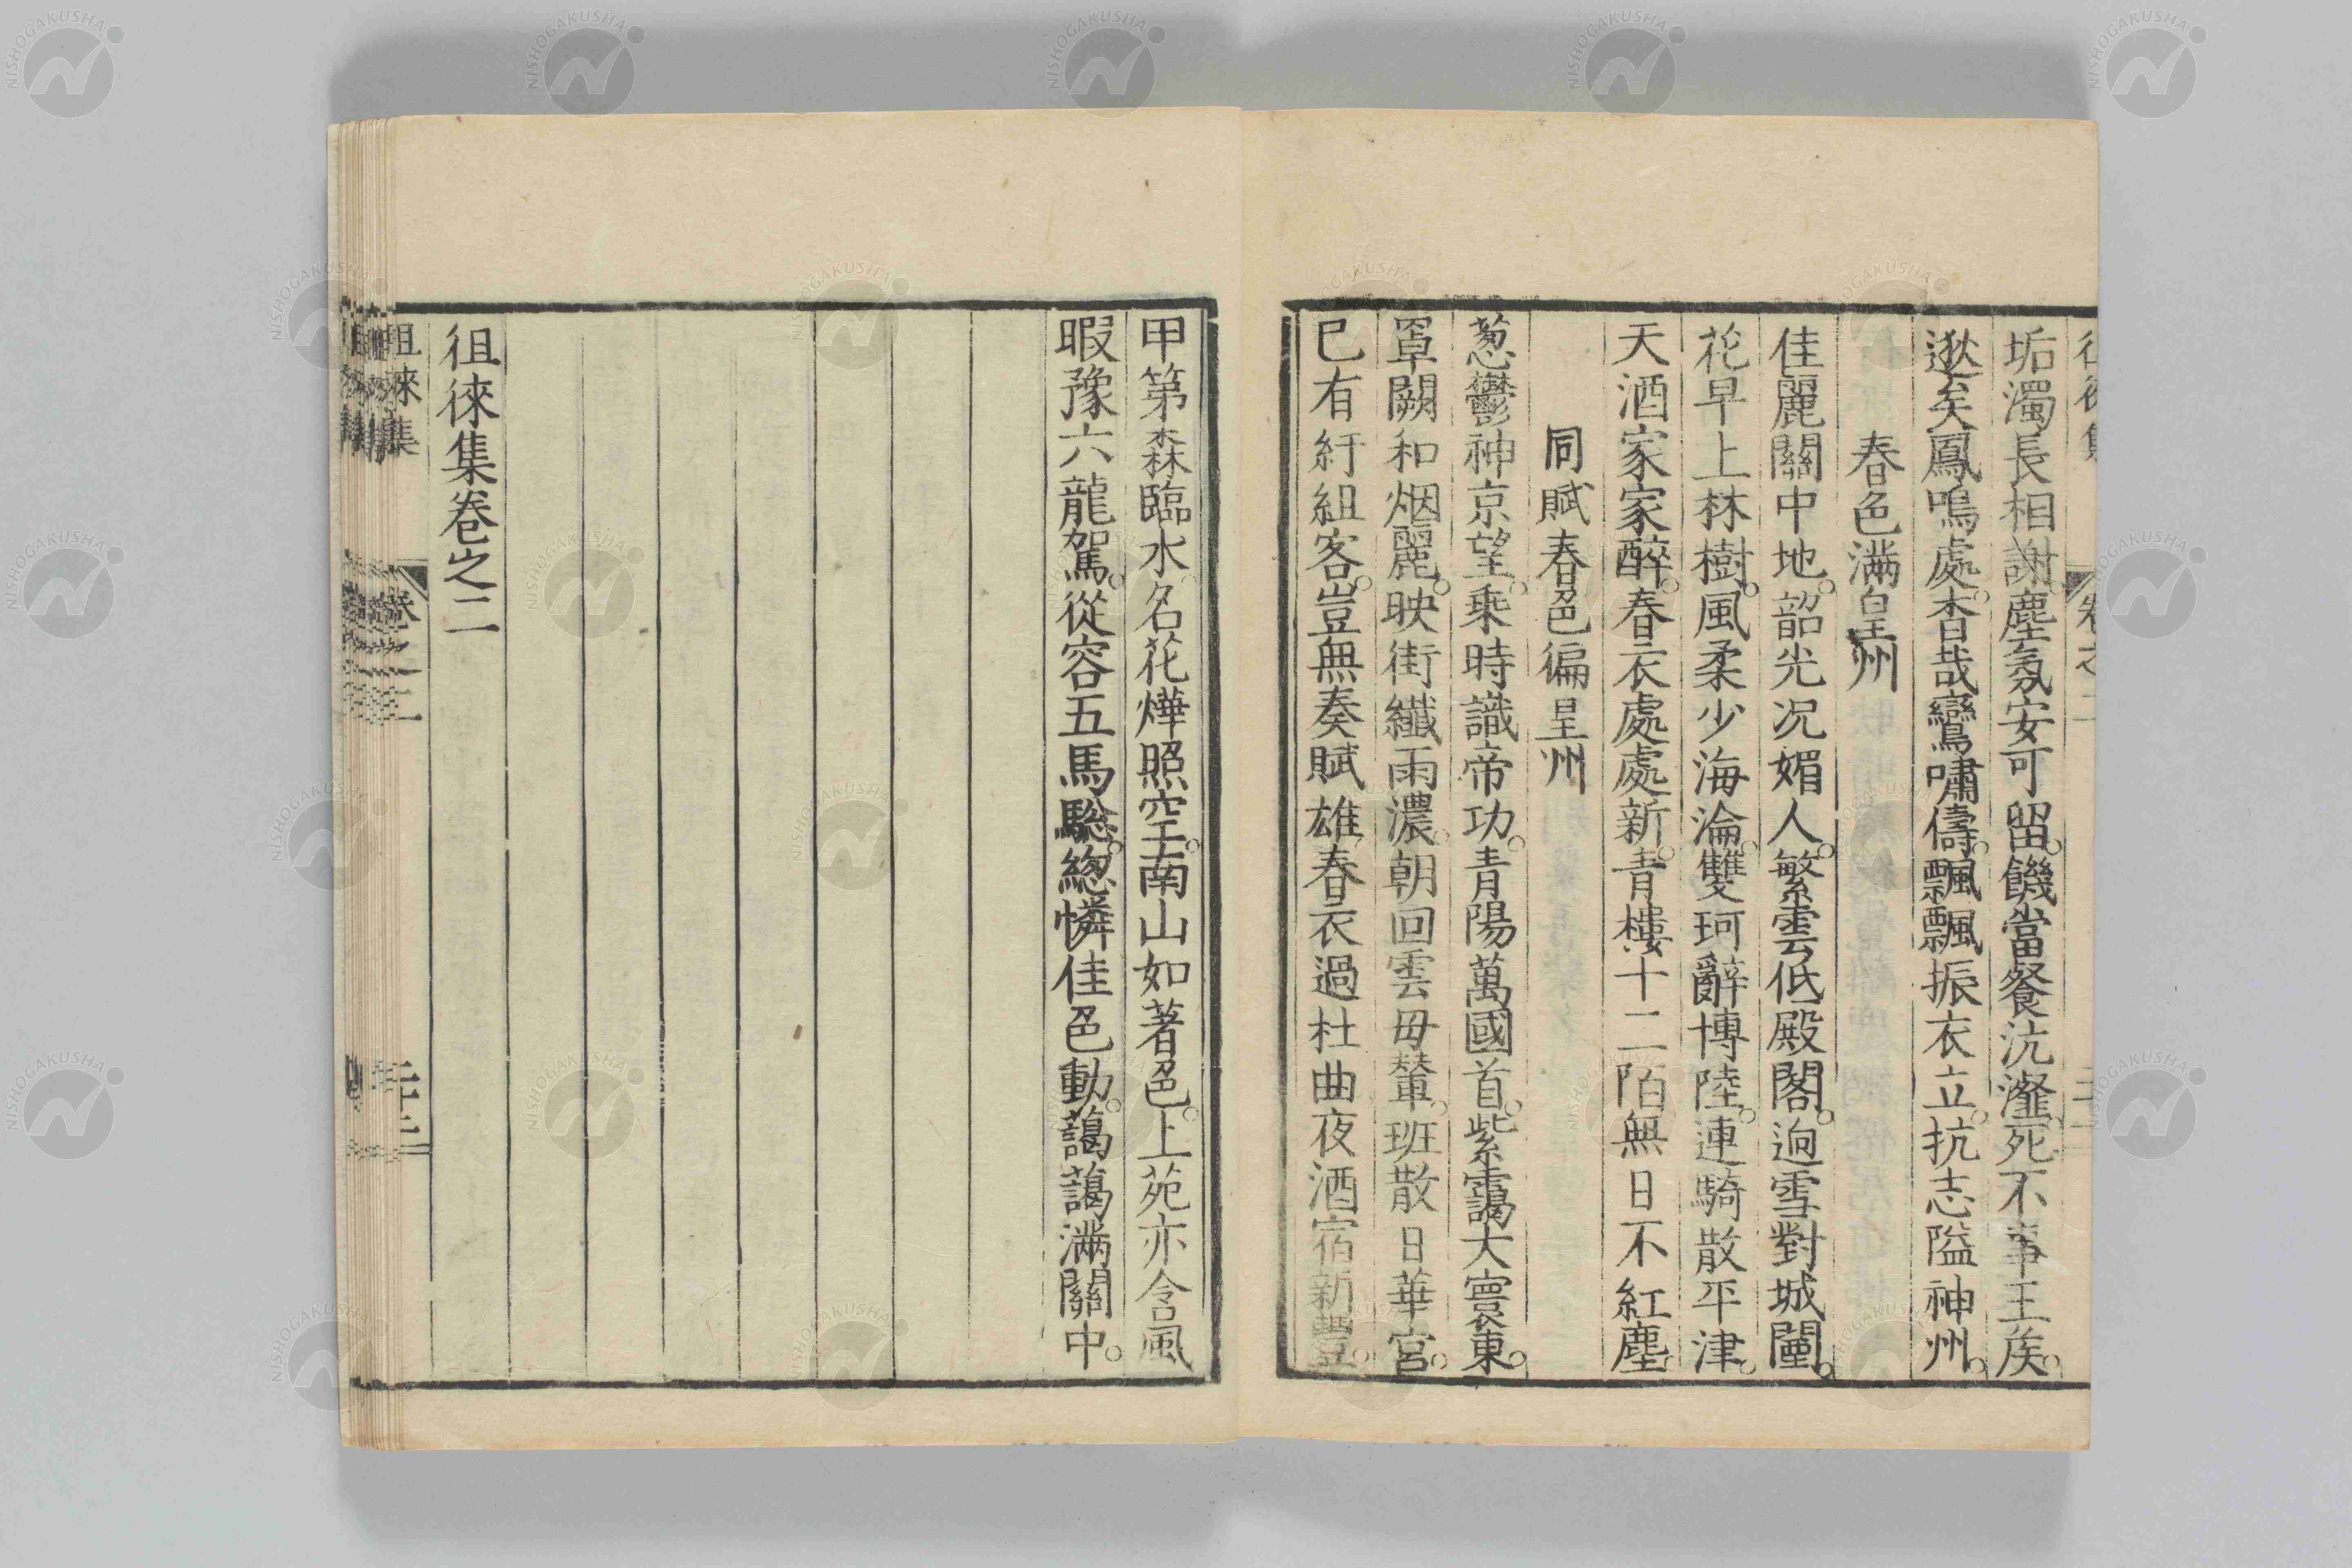 垢濁長相謝塵氛安可留。饑當餐沆瀣。死不事王矦。
逖矣鳳鳴處。杳哉鸞嘯儔。飄飄振衣立。抗志隘神州。
春色滿皇州
佳麗關中地。韶光况媚人。繁雲低殿閣。迥雪對城闉。
花早上林樹。風柔少海淪。雙珂辭博陸。連騎散平津。
天酒家家醉。春衣處處新。青樓十二陌無日不紅塵
同賦春色徧皇州
葱鬱神京望。乘時識帝功。青陽萬國首。紫靄大寰東。
罩闕和烟麗。映街纖雨濃。朝回雲毋輦。班散日華宮。
已有紆組客。豈無奏賦雄。春衣過杜曲夜酒宿新豐。
甲第森臨水名花燁照空。南山如著色。上苑亦含風
暇豫六龍駕。從容五馬驄。總憐佳色動。藹藹滿關中。
徂徠集卷之二
徂徠集
卷之二
NISHOGAKUSHA